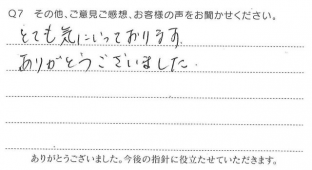 Q7 その他、ご意見ご感想、お客様の声をお聞かせください。
とても気にいっております。
ありがとうございました。
ありがとうございました。今後の指針に役立たせていただきます。